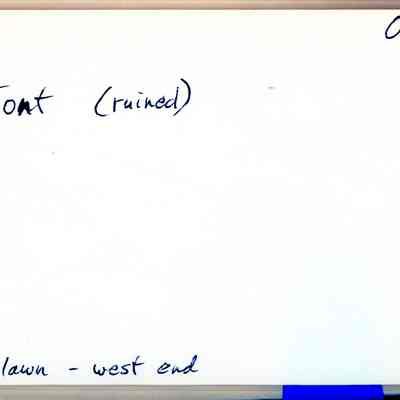 (ruined)
lawn - west end